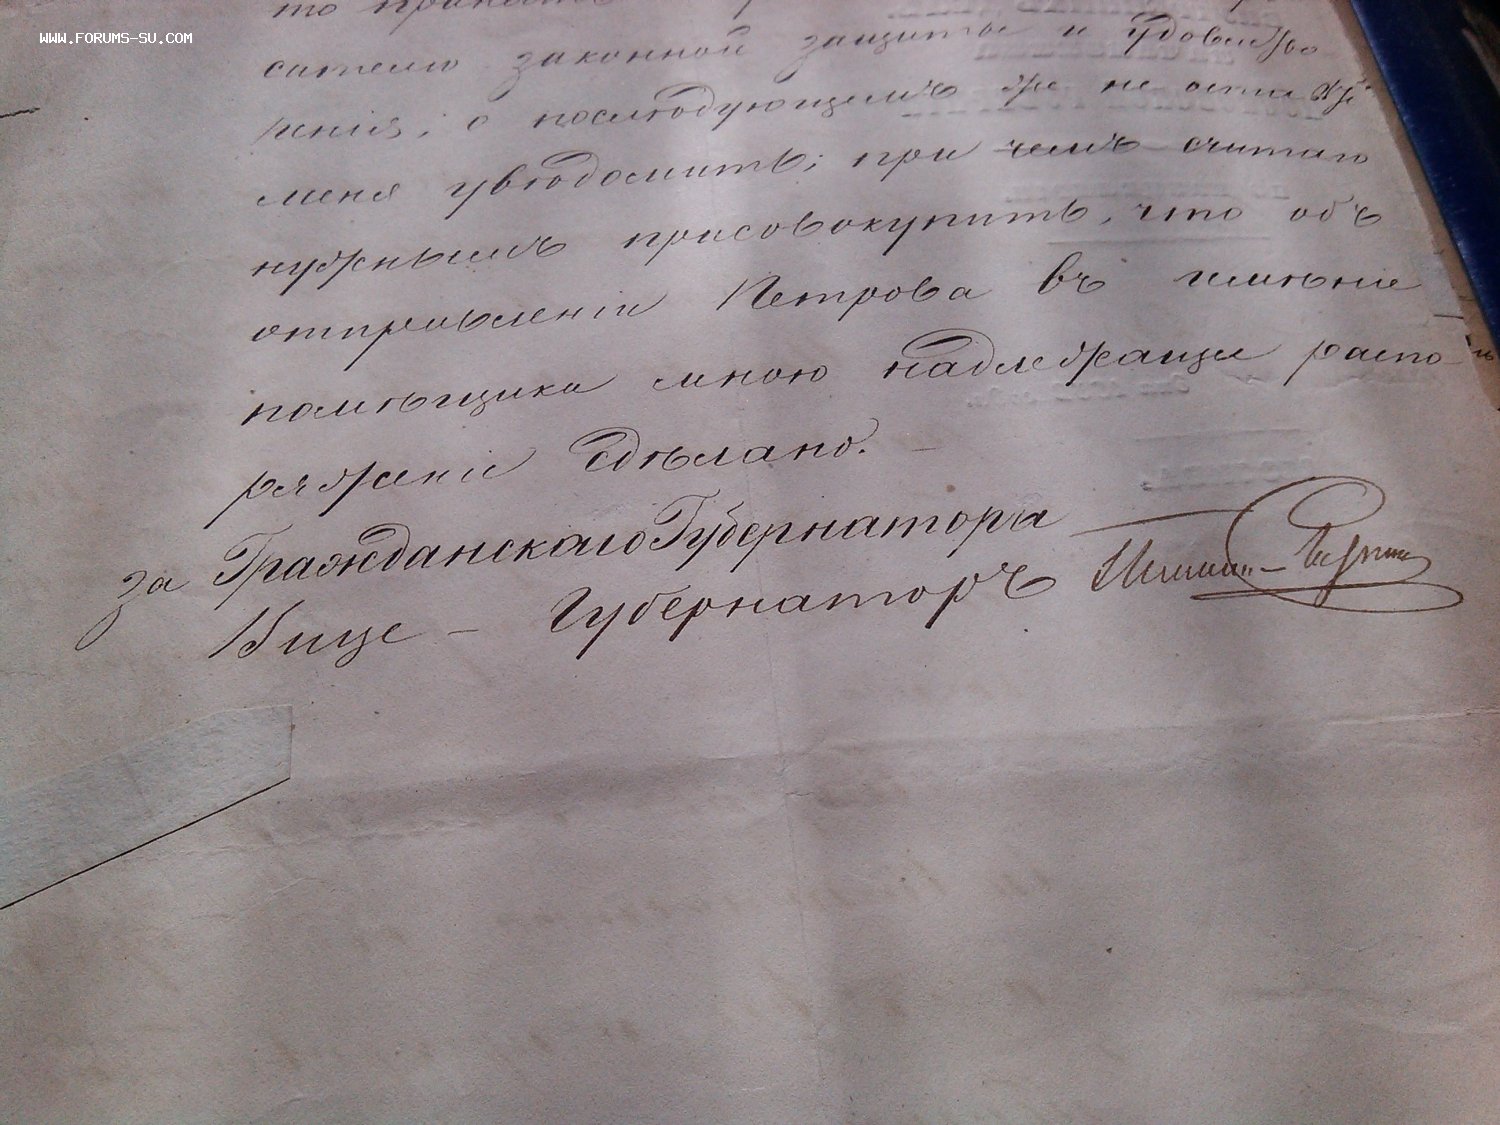 WWW.FORUMS-SU.COM
то
сателю законной защиты и удовлетво
ренiя; о послѣдующемъ же не оставьте
меня увѣдомить; при чемъ считаю
нужнымъ присовокупить, что объ
отправленiи Петрова въ имѣнiе
помѣщика мною надлежащее распо
ряженiе сдѣлано.
за Гражданскаго Губернатора
Вице - Губернаторъ